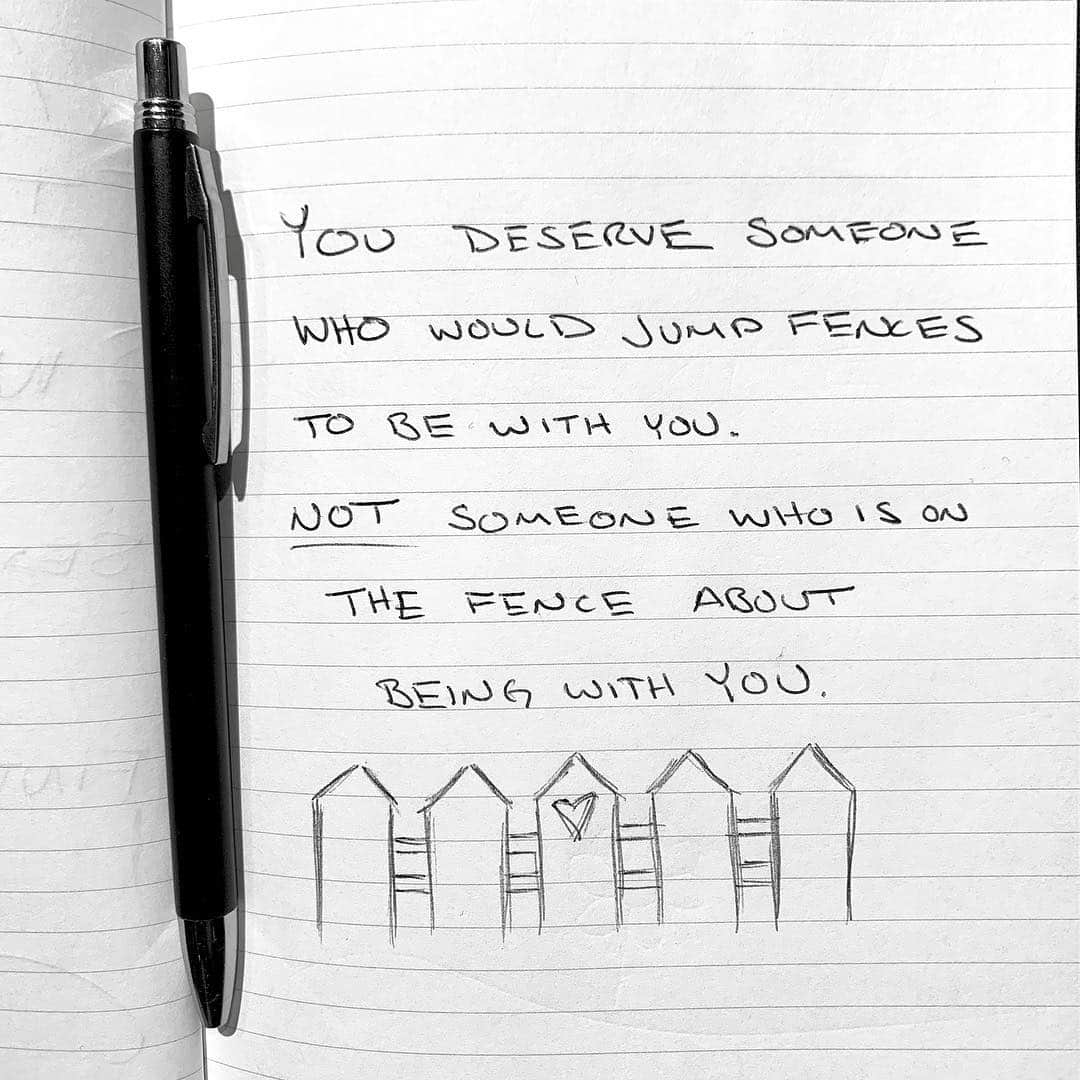 YOU DESERVE SOMEONE
WHO WOULD JUMP FENCES
TO BE WITH YOU.
NOT SOMEONE WHO IS ON
THE FENCE ABOUT
BEING WITH YOU.